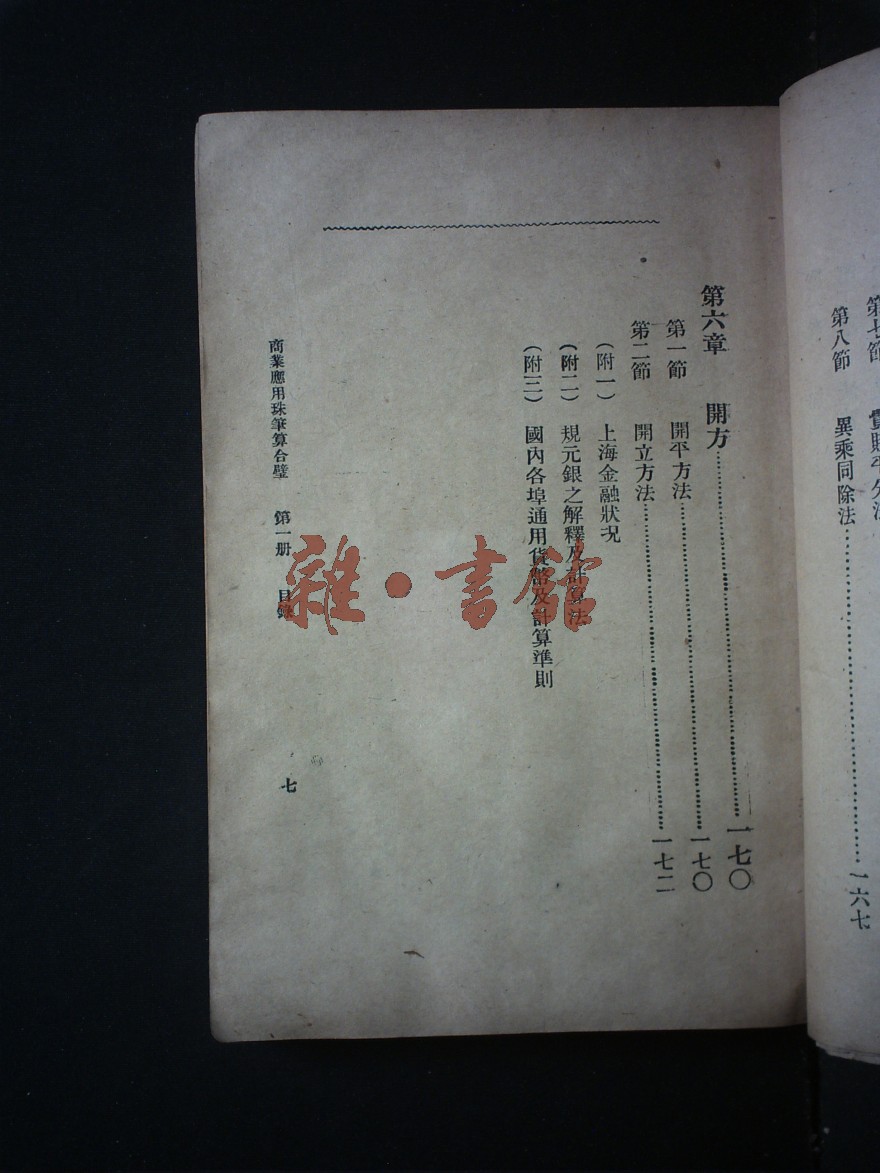 第七節
第八節 異乘同除法 一六七
第六章 開方 一七〇
第一節 開平方法 一七〇
第二節 開立方法 一七二
(附一) 上海金融狀況
(附二) 規元銀之解釋及計算法
(附三) 國內各埠通用貨幣及計算準則
商業應用珠筆算合璧 第一册 目錄 七
雜·書館